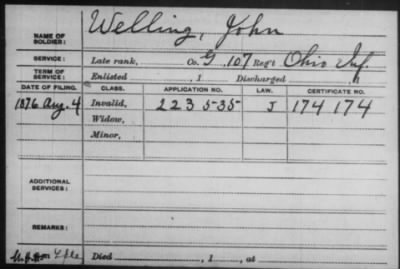 NAME OF SOLDIER: Welling, John
SERVICE: Late rank, Co. G, 107 Reg't Ohio Inf.
TERM OF SERVICE: Enlisted , 1 Discharged , 1
DATE OF FILING. CLASS. APPLICATION NO. LAW. CERTIFICATE NO.
1876 Aug. 4 Invalid, 223535 J 174174
Widow,
Minor,
ADDITIONAL SERVICES:
REMARKS:
Died , 1 , at